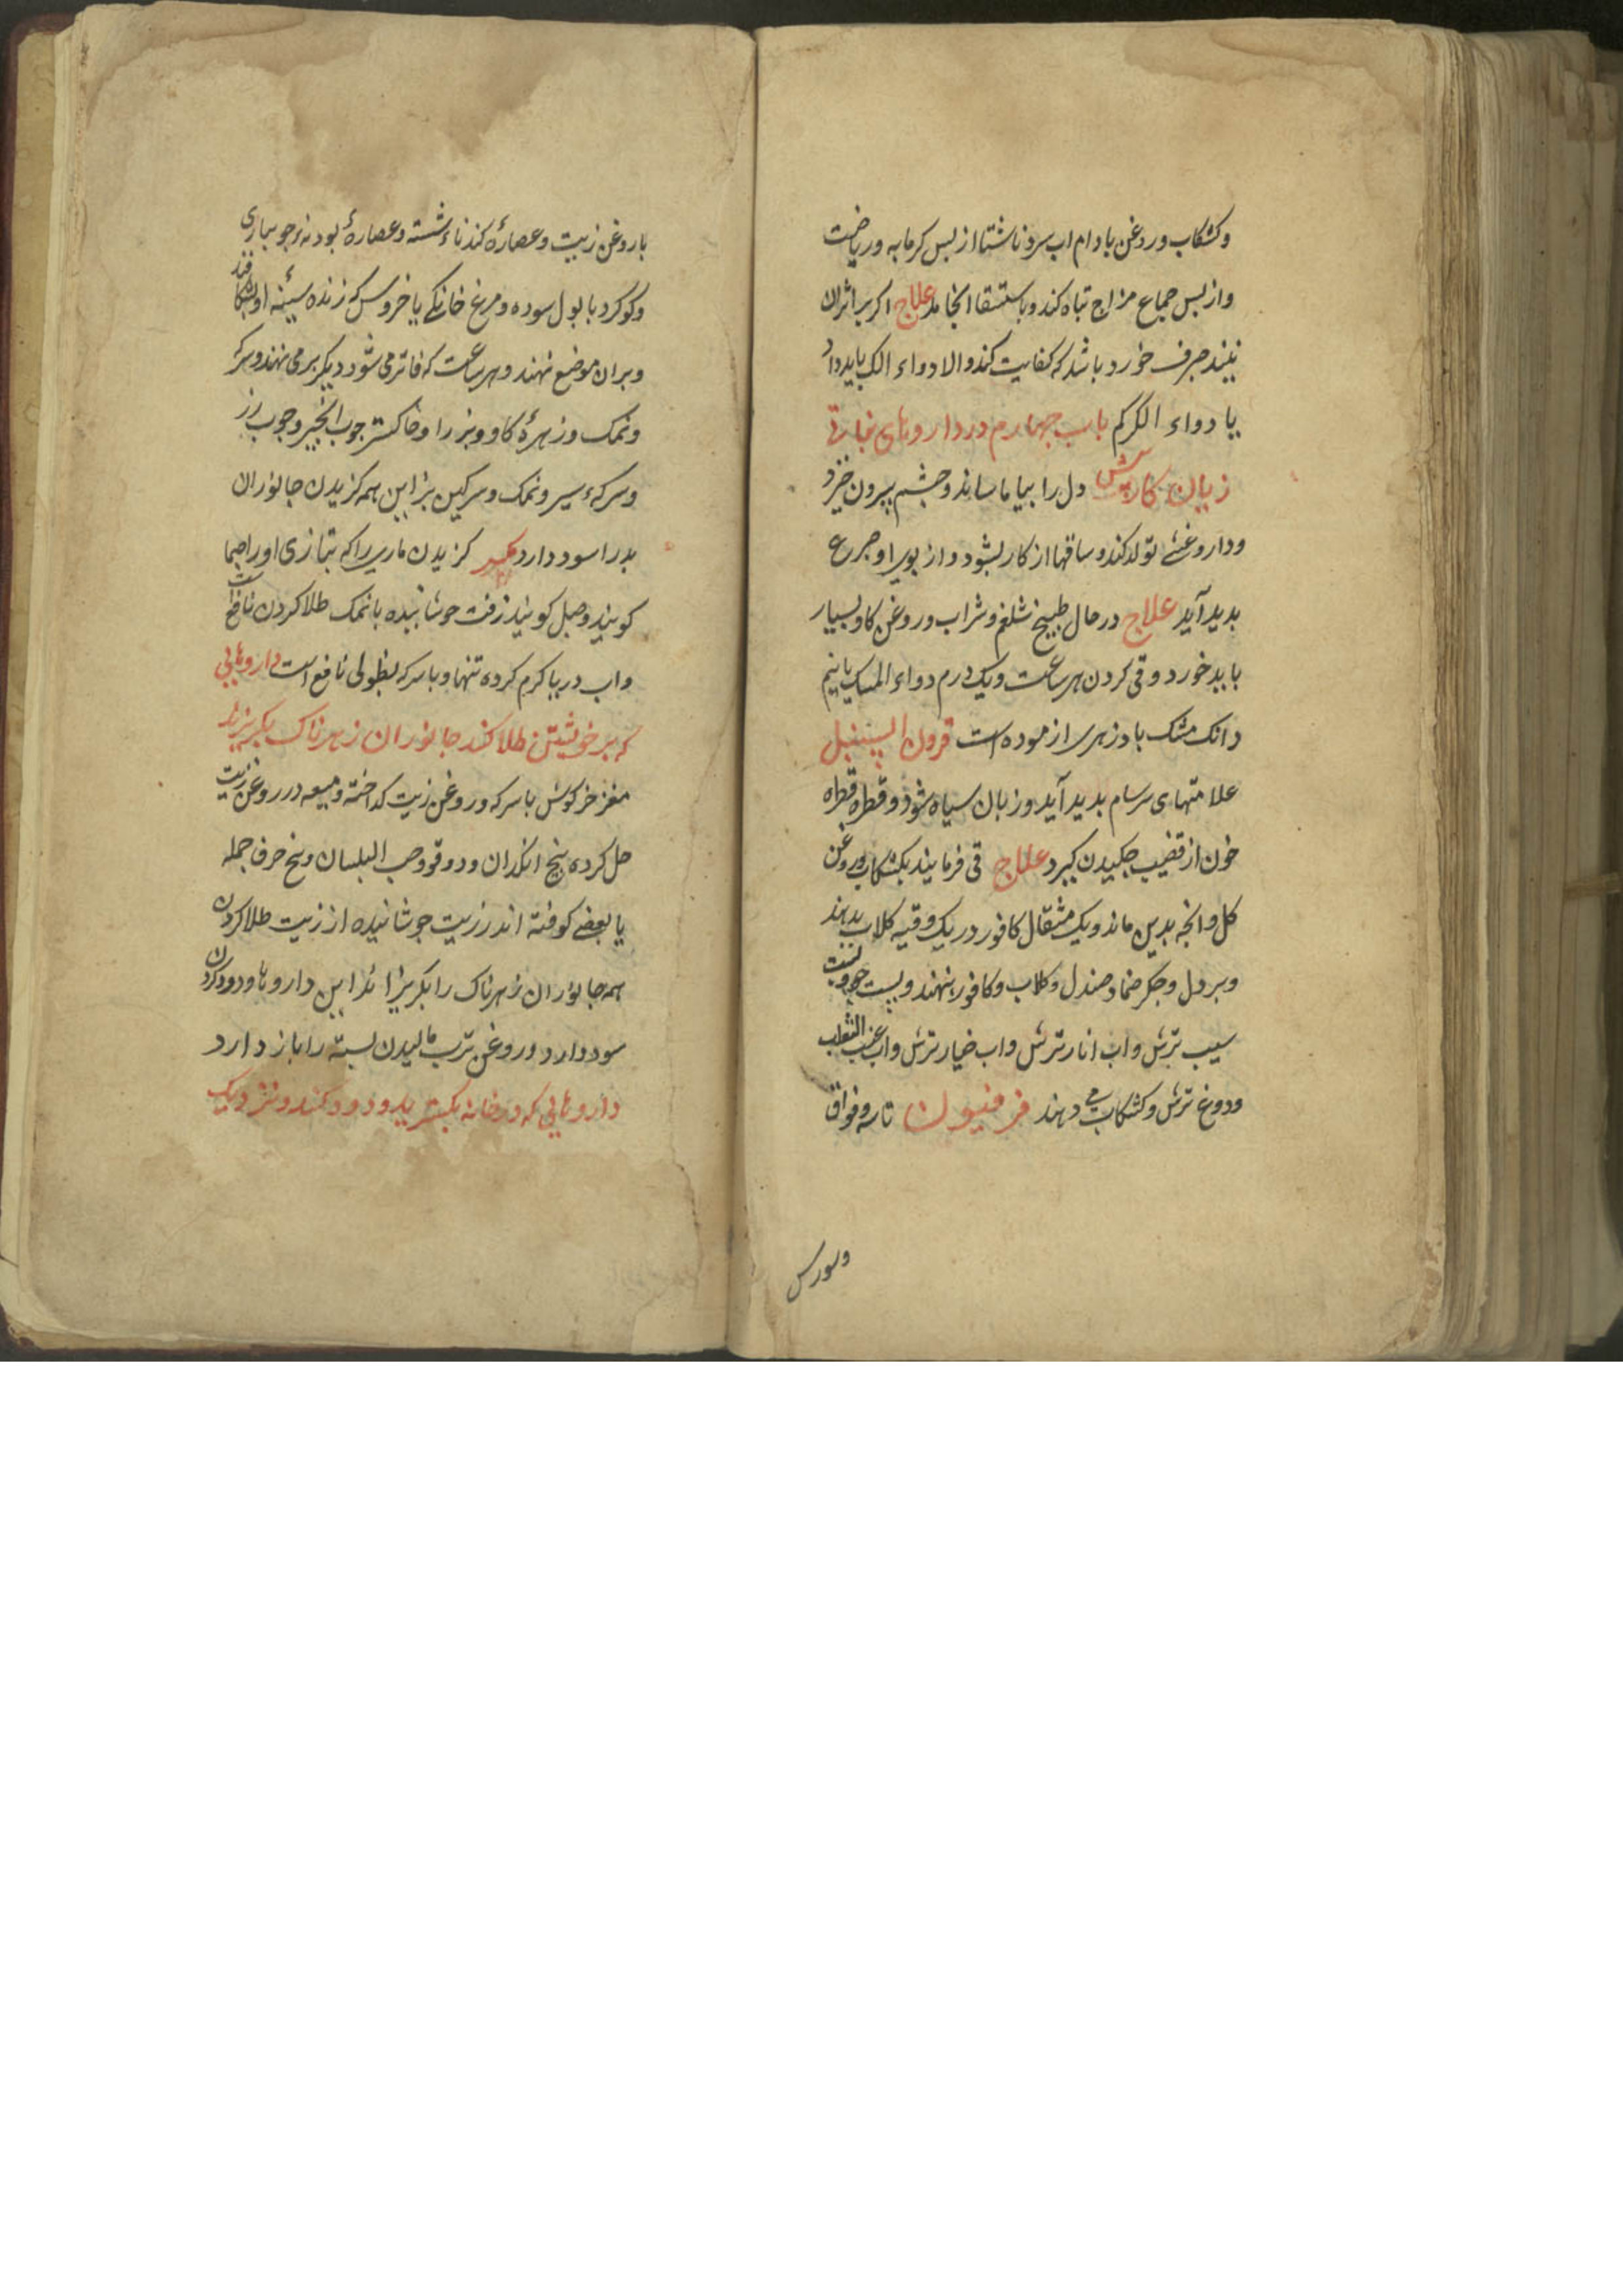 وکشکاب وروغن بادام اب سرد ناشتا از بس کرمابه وریاضت
واز بس جماع مزاج تباه کند وباستسقا انجامد علاج اکر بر اثران
نبیند صرف خورد باشد که کفایت کند والا دواء الک باید داد
یا دواء الکرکم باب جهارم در داروهای نباتی
زیان کار بیش دل را بیاماساند وجشم بیرون خیزد
ودار وغشی تولد کند وساقها از کار بشود واز بوی او صرع
بدید آید علاج در حال طبیخ شلغم وشراب وروغن کاو بسیار
باید خورد وقی کردن هر ساعت ویک درم دواء المسک یا نیم
دانک مشک بادزهری ازموده است قرون السنبل
علامتهای سرسام بدید آید وزبان سیاه شود وقطره قطره
خون از قضیب جکیدن کیرد علاج قی فرمایند بکشکاب وروغن
کل وانجه بدین ماند ویک مثقال کافور در یک وقیه کلاب بدهند
وبر دل وجکر ضماد صندل وکلاب وکافور بنهند وپست جو وپست
سیب ترش واب انار ترش واب خیار ترش واب عنب الثعلب
ودوغ ترش وکشکاب می دهند فرفیون تاسه وفواق
وسورس
با روغن زیت وعصارۀ کندناء شسته وعصارۀ بودنه جویباری
وکوکرد با بول سوده ومرغ خانکی یا خروس که زنده سینۀ او بشکافند
وبران موضع نهند وهر ساعت که فاتر می شود دیکر برمی نهند وسرکه
ونمک وزهرۀ کاو وبز را وخاکستر جوب انجیر وجوب رز
وسرکه وسیر ونمک وسرکین بز این همه کزیدن جانوران
بد را سود دارد کزیدن ماری را که بتازی او را صما
کویند وصل کویند زفت جوشانیده با نمک طلا کردن نافع است
واب دریا کرم کرده تنها وبا سرکه بطولی نافع است داروهایی
که بر خویشتن طلا کنند جانوران زهرناک بکریزند
مغز خرکوش با سرکه وروغن زیت کداخته ومیعه در روغن زیت
حل کرده بیخ انکدان ودوقو وحب البلسان وبیخ حرف جمله
یا بعضی کوفته اندر زیت جوشانیده از زیت طلا کردن
همه جانوران زهرناک را بکریزاند این داروها ودود کردن
سود دارد وروغن ترب مالیدن بسته را باز دارد
داروهایی که در خانه بکسترند ودود کنند ونزدیک